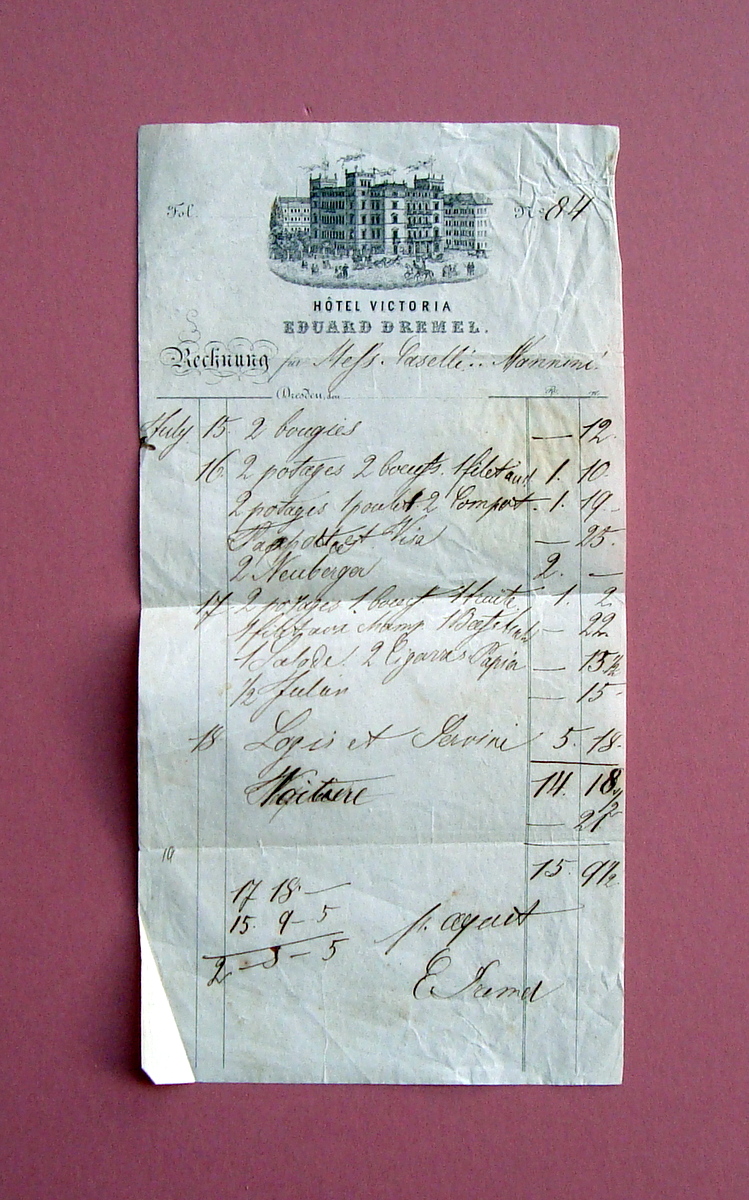 Fol. No 84
HÔTEL VICTORIA
EDUARD DREMEL.
Rechnung für Mess. Caselli .. Nannini
Dresden, den
July 15. 2 bougies — 12.
16. 2 potages 2 boeufs. 1 filet 1. 10.
2 potages 1 poulet 2 Compot. 1. 19.
Passporte et Visa — 25.
2 Neuberger 2. —
17 2 potages 1 boeuf 1 1. 2.
1 filet aux champ. 1 — 22.
1 Salade. 2 Cigarres Papier — 15½
½ Julien — 15.
18 Logis et Service 5. 18.
14. 18½
Voiture — 21
15. 9½
19
17 18 —
15. 9 – 5
2 – 8 – 5
p. acquit
E Dremel